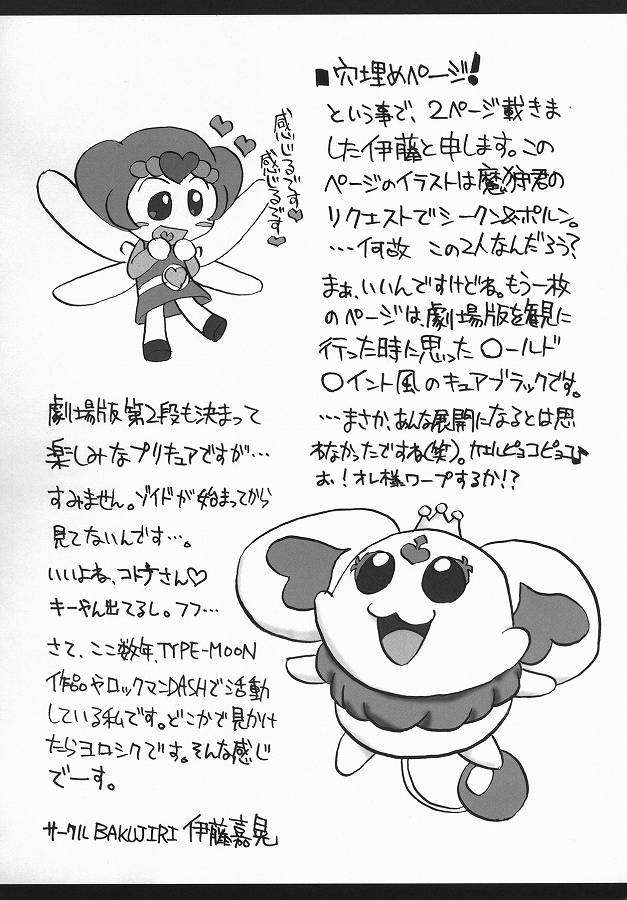 ■穴埋めページ!
という事で、2ページ載きま
した伊藤と申します。この
ページのイラストは魔狩君の
リクエストでシークン&ポルン。
…何故 この2人なんだろう?
まぁ、いいんですけどね。もう一枚
のページは、劇場版を観に
行った時に思った〇ールド
〇イント風のキュアブラックです。
…まさか、あんな展開になるとは思
わなかったですね(笑)。カエルピョコピョコ♪
お!オレ様ワープするか!?
感じるです♥
感じるです♥
劇場版第2段も決まって
楽しみなプリキュアですが…
すみません。ゾイドが始まってから
見てないんです…。
いいよね、コトナさん♡
キーやん出てるし。フフ…
さて、ここ数年、TYPE-MOON
作品やロックマンDASHで活動
している私です。どこかで見かけ
たらヨロシクです。そんな感じ
でーす。
サークル BAKUJIRI 伊藤嘉晃